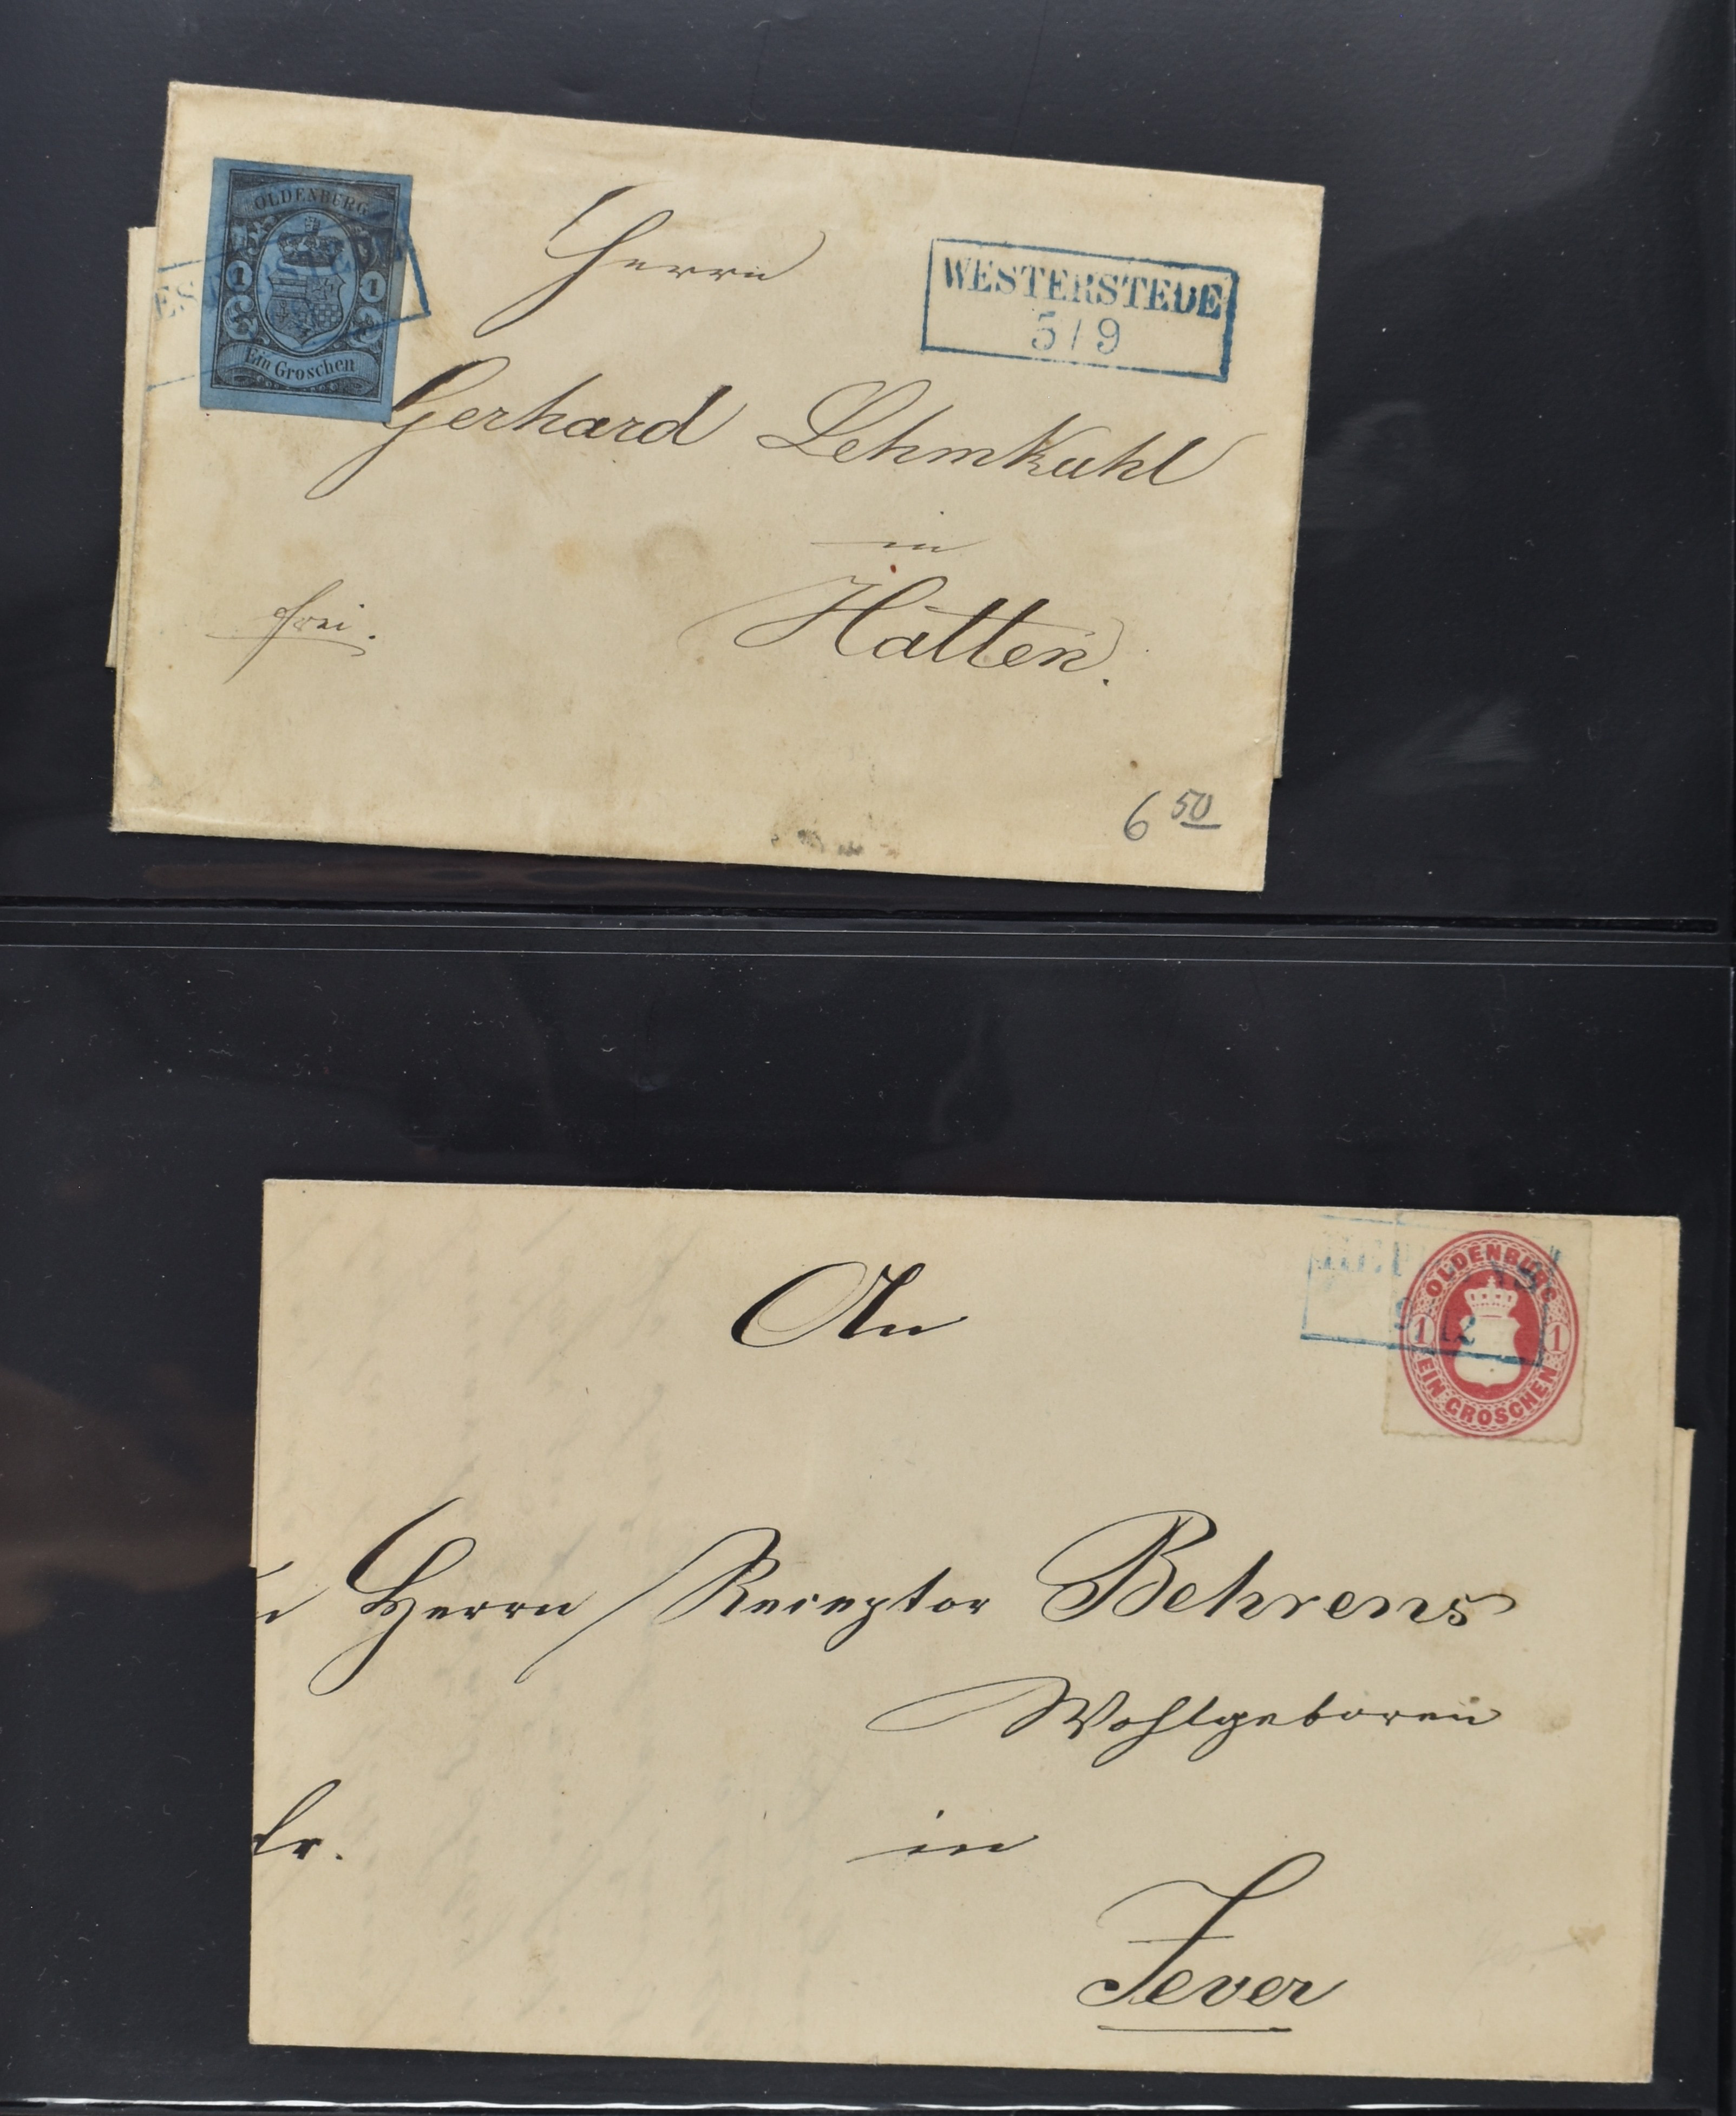 OLDENBURG
1 1
Ein Groschen
WESTERSTEDE
5/9
Herrn
Gerhard Lehmkuhl
in
Hatten.
frei.
6 50
OLDENBURG
1 1
EIN GROSCHEN
12
An
Herrn Receptor Behrens
Wohlgeboren
in
Jever